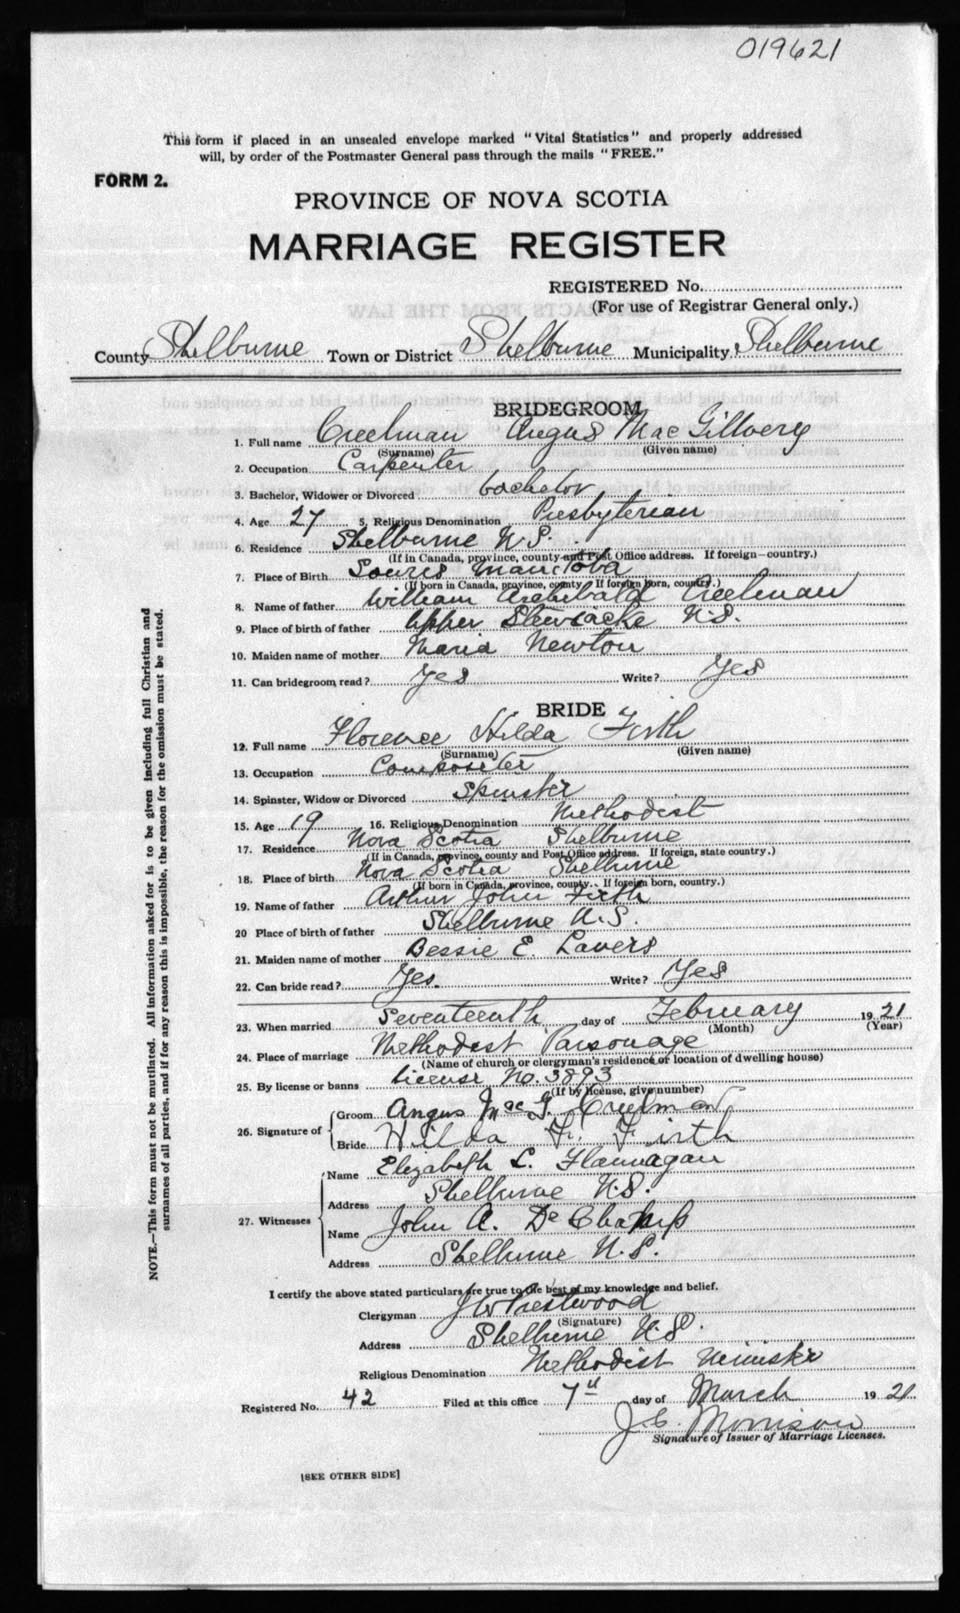 019621
This form if placed in an unsealed envelope marked "Vital Statistics" and properly addressed
will, by order of the Postmaster General pass through the mails "FREE."
FORM 2.
PROVINCE OF NOVA SCOTIA
MARRIAGE REGISTER
REGISTERED No.
(For use of Registrar General only.)
County Shelburne Town or District Shelburne Municipality Shelburne
BRIDEGROOM
1. Full name Creelman Angus MacGillvery
(Surname) (Given name)
2. Occupation Carpenter
3. Bachelor, Widower or Divorced bachelor
4. Age 27 5. Religious Denomination Presbyterian
6. Residence Shelburne N.S.
(If in Canada, province, county and Post Office address. If foreign—country.)
7. Place of Birth Souris Manitoba
(If born in Canada, province, county. If foreign born, country.)
8. Name of father William Archibald Creelman
9. Place of birth of father Upper Stewiacke N.S.
10. Maiden name of mother Maria Newton
11. Can bridegroom read? Yes Write? Yes
BRIDE
12. Full name Florence Hilda Firth
(Surname) (Given name)
13. Occupation Compositer
14. Spinster, Widow or Divorced Spinster
15. Age 19 16. Religious Denomination Methodist
17. Residence Nova Scotia Shelburne
(If in Canada, province, county and Post Office address. If foreign, state country.)
18. Place of birth Nova Scotia Shelburne
(If born in Canada, province, county. If foreign born, country.)
19. Name of father Arthur John Firth
20 Place of birth of father Shelburne N.S.
21. Maiden name of mother Bessie E. Lavers
22. Can bride read? Yes. Write? Yes
23. When married Seventeenth day of February 1921
(Month) (Year)
24. Place of marriage Methodist Parsonage
(Name of church or clergyman's residence or location of dwelling house)
25. By license or banns License No. 3893
(If by license, give number)
26. Signature of Groom Angus MacG. Creelman
Bride Hilda F. Firth
27. Witnesses Name Elizabeth L. Flannagan
Address Shelburne N.S.
Name John A. De Champ
Address Shelburne N.S.
I certify the above stated particulars are true to the best of my knowledge and belief.
Clergyman J W Prestwood
(Signature)
Address Shelburne N.S.
Religious Denomination Methodist Minister
Registered No. 42 Filed at this office 7th day of March 1921
J. C. Morrison
Signature of Issuer of Marriage Licenses.
[SEE OTHER SIDE]
NOTE.—This form must not be mutilated. All information asked for is to be given including full Christian and
surnames of all parties, and if for any reason this is impossible, the reason for the omission must be stated.